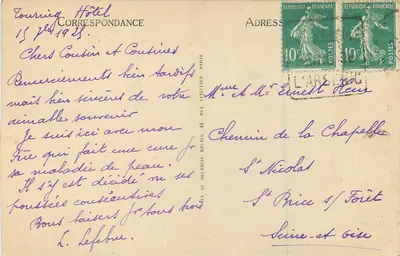 Touring Hôtel
15 7bre 1925.
CORRESPONDANCE
Chers Cousin et Cousines
Remerciements bien tardifs
mais bien sincères de votre
aimable souvenir
Je suis ici avec mon
qui fait une cure pr
sa maladie de peau.
Il s'y est décidé vu ses
poussées consécutives
Bons baisers pr tous trois
L. Lefebvre.
ADRESSE
REPUBLIQUE FRANÇAISE
10c
POSTES
REPUBLIQUE FRANÇAISE
10c
POSTES
Mme et Mr Ernest
Chemin de la Chapelle
St Nicolas
St Brice s/ Forêt
Seine-et-Oise